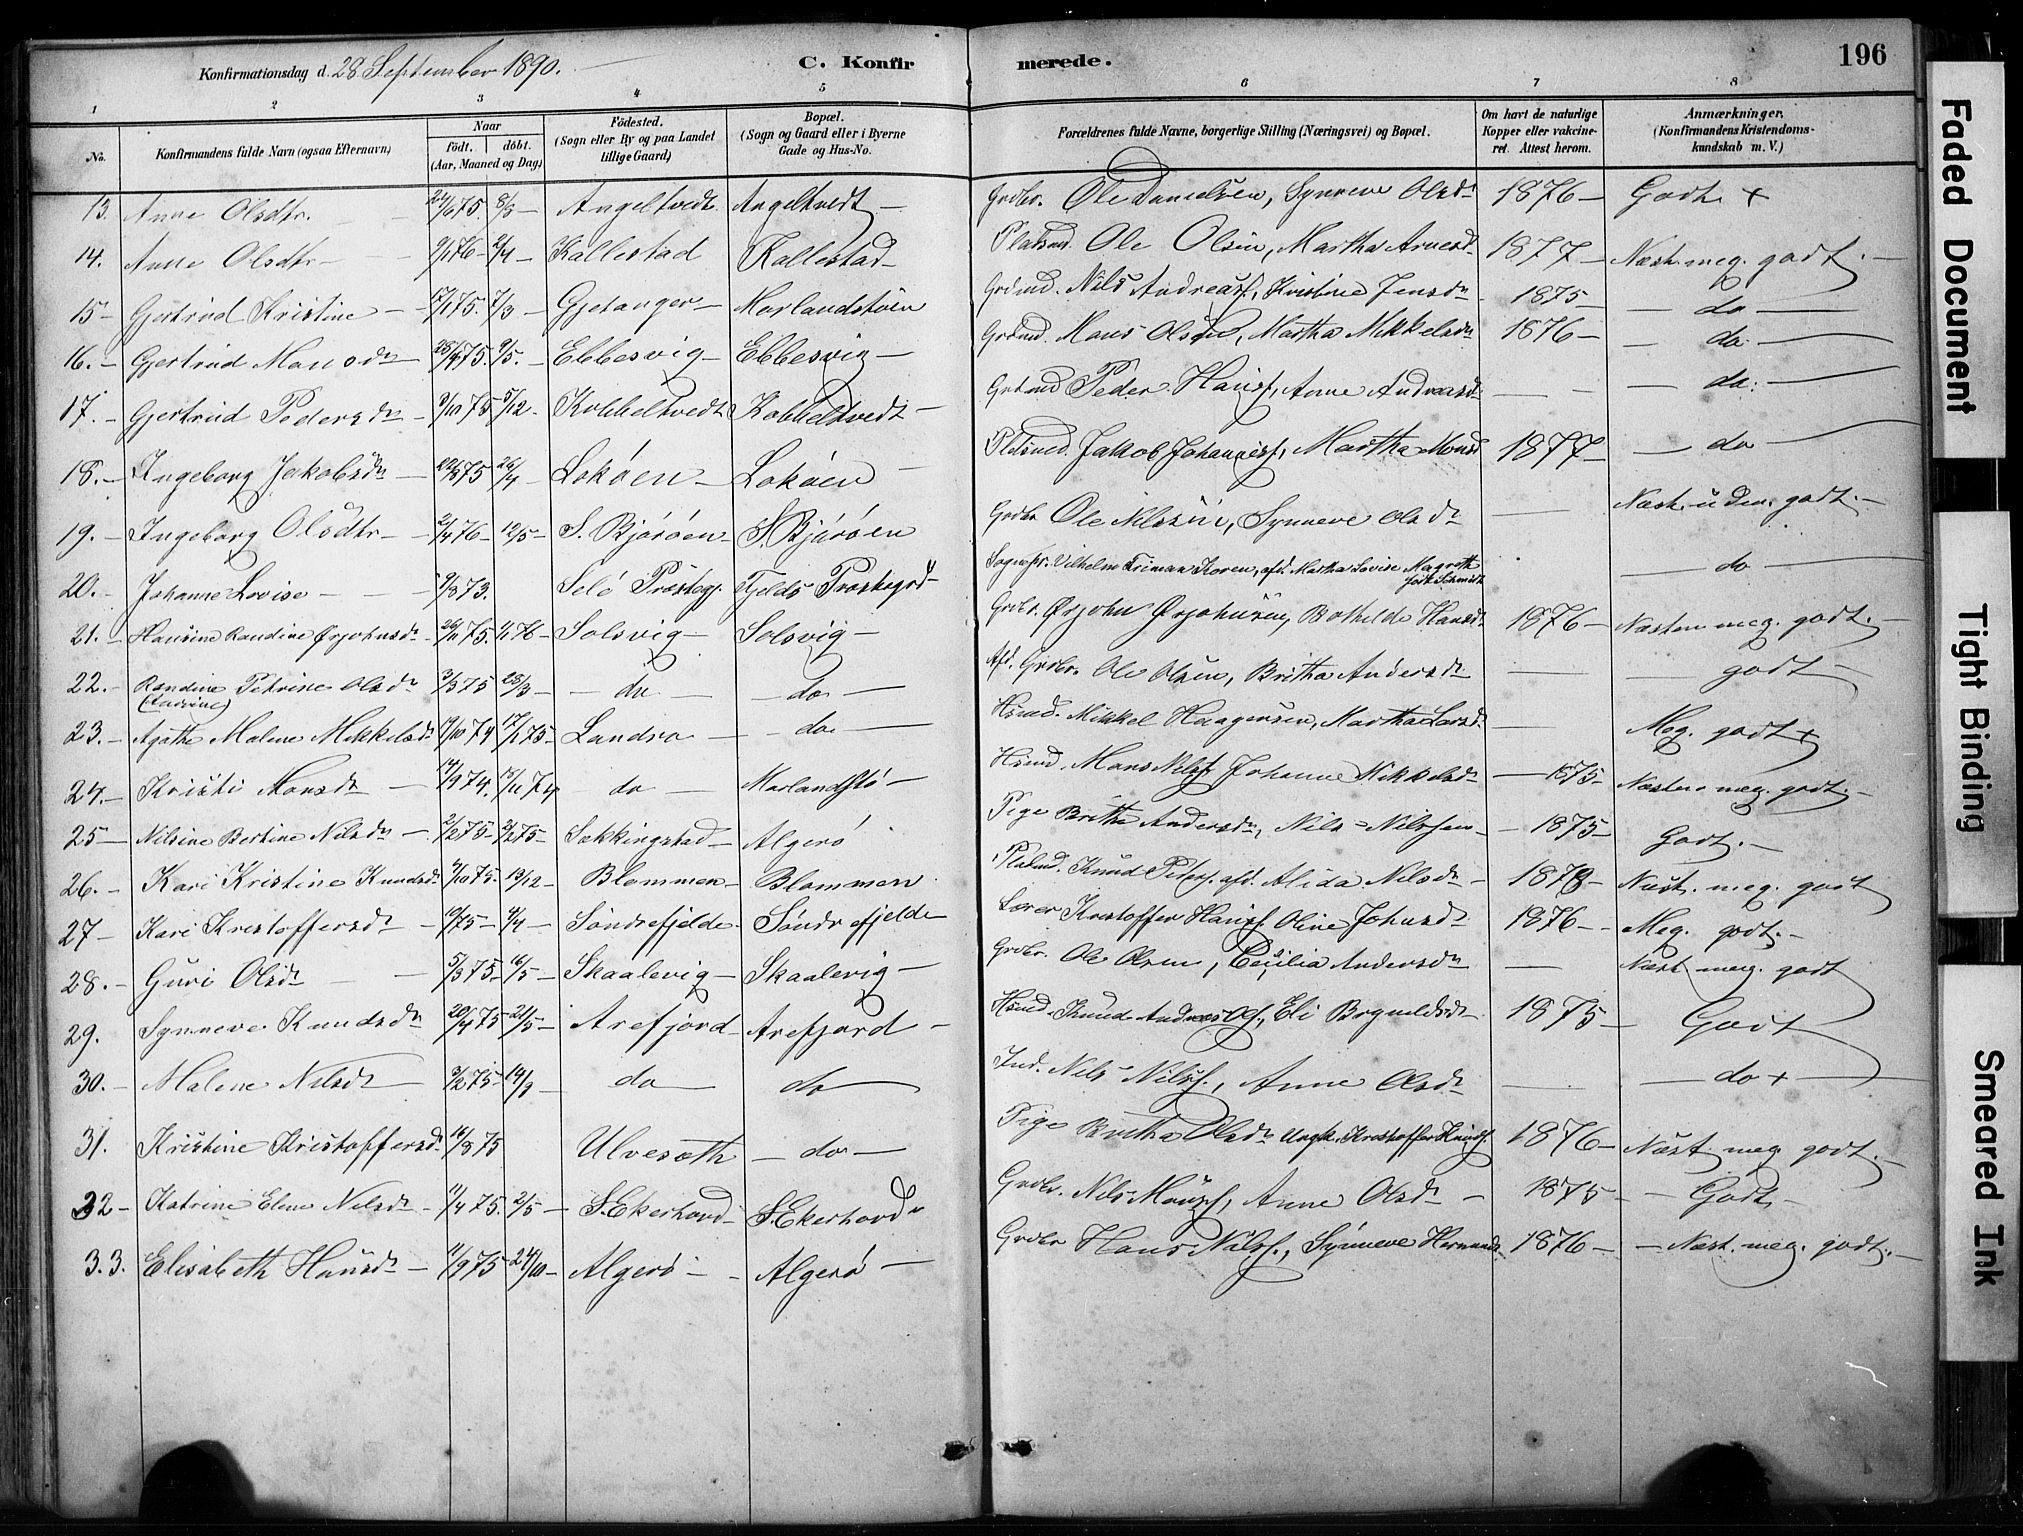 Konfirmationsdag d. 28 September 1890.
C. Konfirmerede.
196
1 2 3 4 5 6 7 8
No.
Konfirmandens fulde Navn (ogsaa Efternavn)
Naar
født. døbt.
(Aar, Maaned og Dag)
Fødested.
(Sogn eller By og paa Landet
tillige Gaard)
Bopæl.
(Sogn og Gaard eller i Byerne
Gade og Hus-No.
Forældrenes fulde Navne, borgerlige Stilling (Næringsvei) og Bopæl.
Om havt de naturlige
Kopper eller vakcine-
ret. Attest herom.
Anmærkninger.
(Konfirmandens Kristendoms-
kundskab m. V.)
13. Anne Olsdtr. 24/6 75. 8/8 Angeltvedt. Angeltvedt Grdbr. Ole Danielsen, Synneve Olsdr 1876 Godt +
14. Anne Olsdtr 9/1 76 2/4 Kallestad Kallestad Pladsmd. Ole Olsen, Martha Arnesdr 1877 Næst. meg. godt.
15 Gertrud Kristine 17/1 75. 7/3 Gjetanger Morlandstøen Grdmd. Nils Andreasf., Kristine Jensdr 1875 do
16. Gjertrud Monsdr 25/4 75. 9/5. Ebbesvig Ebbesvig Grdmd. Mons Olsen, Martha Mikkelsdr 1876 do
17. Gjertrud Pedersdr 9/10 75 5/12 Kobbeltvedt Kobbeltvedt Grdmd Peder Hansf., Anne Andreasdr do.
18. Ingeborg Jakobsdr 75 26/4 Lokøen Lokøen Pladsmd. Jakob Johannesf, Martha Monsd 1877 do
19. Ingeborg Olsdtr 2/4 76 12/5 S. Bjørøen S. Bjørøen Grdbr Ole Nilssen, Synneve Olsdr Næst. uden godt.
20. Johanne Lovise 9/8 73. Selø Præsteg. Fjelds Præstegrd Sognepr. Vilhelm Friman Koren, afd. Martha Lovise Magreth født Schmidt do
21. Hansine Randine Ørjohnsdr 26/11 75. 1/1 76 Solsvig Solsvig Grdbr. Ørjohn Ørjohnsen, Bothilde Hansdr 1876 Næsten meg. godt.
22. Randine Petrine Olsdr 3/3 75 28/3 do do Afd. Grdbr. Ole Olsen, Britha Andersdr godt
23. Agathe Malene Mikkelsdr 19/10 74 17/1 75 Landro do Hsmd. Mikkel Haagensen, Martha Larsd. Meg. godt +
24. Kristi Monsdr 14/9 74. 15/11 74 do Morlandstø Hsmd. Mons Nilsf. Johanne Mikkelsdr 1875 Næsten meg. godt.
25 Nilsine Bertine Nilsdr 2/2 75 2/2 75 Sekkingstad Algerø Pige Britha Andersdr, Nils Nilssen 1875 Godt.
26. Kari Kristine Knudsdr 9/10 75. 19/12 Blommen Blommen Pladsmd. Knud Peders. afd. Alida Nilsdr 1878 Næst. meg. godt
27 Kari Kristoffersdr 75 4/4 Søndrefjelde Søndrefjelde Lærer Kristoffer Hansf. Oline Johnsdr 1876 Meg. godt.
28. Guri Olsdr 5/3 75. 16/5 Skaalevig Skaalevig Grdbr. Ole Olsen, Cecilia Andersdr Næst meg. godt
29. Synneve Knudsdr 20/4 75 21/5 Arefjord Arefjord Hsmd. Knud Andreas Olsf., Eli Brynildsdr 1875 Godt
30. Malene Nilsdr 3/2 75 14/3 do do Ind. Nils Nilsf., Anne Olsdr do +
31. Kristine Kristoffersdr 16/8 75 Ulveseth do Pige Britha Olsdr Ungk. Kristoffer Knudsf. 1876 Næst meg. godt.
32 Katrine Elene Nilsdr 11/4 75. 2/5 S. Ekerhovd S. Ekerhovd Grdbr. Nils Monsf, Anne Olsdr 1875 Godt
33. Elisabeth Hansdr 11/9 75 24/10 Algerø Algerø Grdbr Hans Nilsf., Synneve Hermandsdr 1876 Næst. meg. godt.
Faded Document
Tight Binding
Smeared Ink